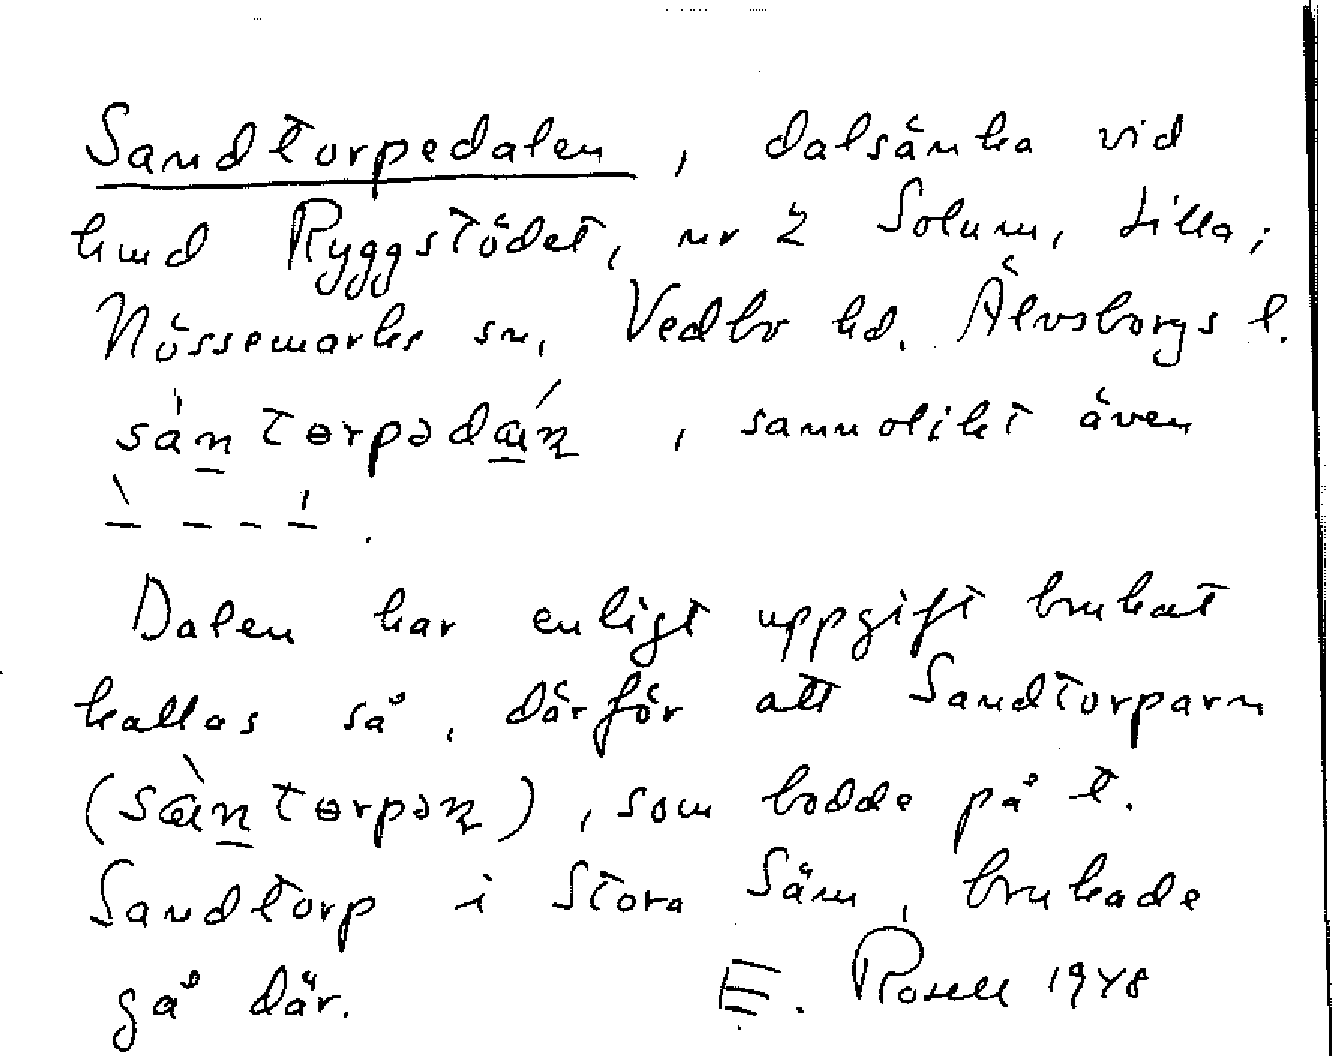 Sandtorpedalen, dalsänka vid
hmd Ryggstödet, nr 2 Solum, Lilla;
Nössemarks sn, Vedbo hd. Älvsborgs l.
sàntɵrpədán, sannolikt även
– – – –.
Dalen har enligt uppgift brukat
kallas så, därför att Sandtorparn
(sàntɵrpən), som bodde på t.
Sandtorp i Stora Säm, brukade
gå där. E. Rosell 1948